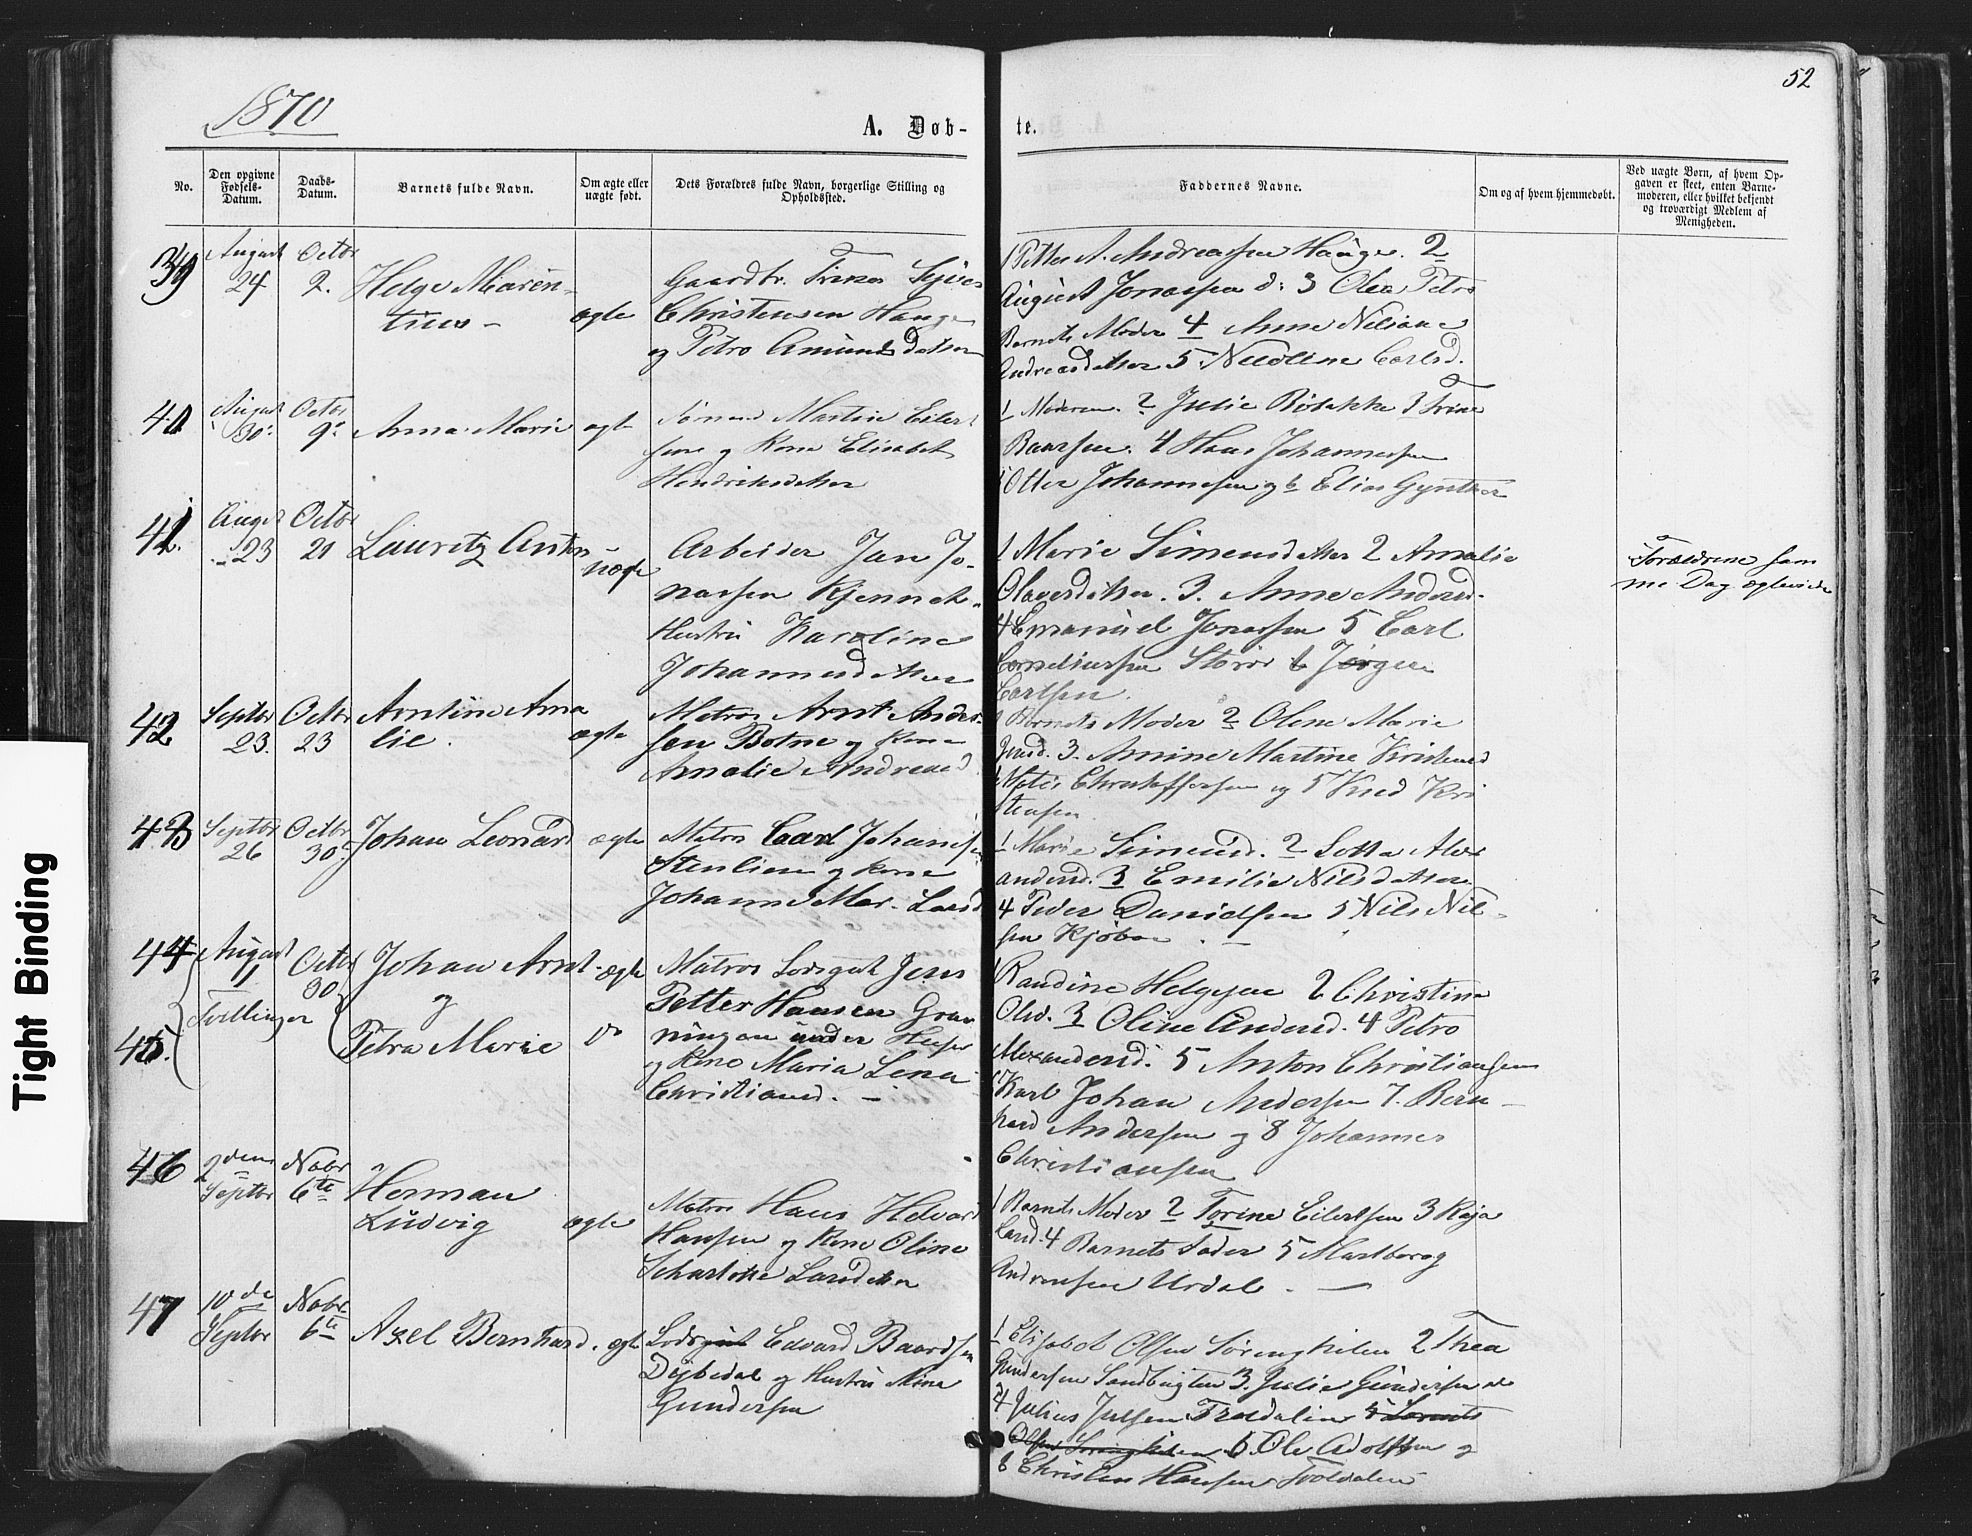 1870
52
A. Døb-
te.
No.
Den opgivne Fødsels-Datum.
Daabs-Datum.
Barnets fulde Navn.
Om ægte eller uægte født.
Dets Forældres fulde Navn, borgerlige Stilling og Opholdssted.
Faddernes Navne.
Om og af hvem hjemmedøbt.
Ved uægte Børn, af hvem Opgaven er skeet, enten Barnemoderen, eller hvilket bekjendt og troværdigt Medlem af Menigheden.
39
August 24
Octbr 2.
Helge Maren-
tius -
ægte
Gaardbr.
Christensen Hauge
og Petro Amundsdatter
1 Petter A. Andreassen Hauge. 2
August Jonassen d: 3 Olea Petro
Barnets Moder 4 Anne Nilsine
Andreasdatter 5 Nicoline Carlsd.
40
August 30.
Octbr 9.
Anna Marie
ægte
Martin Eilert
sen og Kone Elisabet
Hendriksdatter
1 Moderen. 2 Julie 3 Trine
Baarsen. 4 Hans Johannesen
Otter Johannesen og 6 Elias Gynther
41.
August 23
Octbr 21
Lauritz Anton
uægte
Arbeider Jan Jo-
nassen
Hustru Karoline
Johannesdatter
1 Marie Simensdatter 2 Amalie
Olavesdatter. 3. Anne Andersd.
4 Emanuel Jonassen 5 Carl
Corneliussen 6 Jørgen
Carlsen.
Forældrene sam
me Dag ægteviede
42
Septbr 23.
Octbr 23
Arntine Ama
lie.
ægte
Matros Arnt Ander-
sen Botne og Kone
Amalie Andreasd
1 Barnets Moder 2 Olene Marie
Jensd. 3. Amine Martine
4 Peter Christoffersen og 5 Knud Kri
stensen
43
Septbr 26
Octbr 30
Johan Leonard
ægte
Matros Carl Johansen
Stenlien og Kone
Johanne Mar. Larsd
1 Marie Simensd. 2 Lotta Alex
andersd. 3 Emilie Nilsdatter
4 Peder Danielsen 5 Nils Nil-
sen
44
August 11
Octbr 30
Johan Arnt
ægte
og
Tvillinger
45.
Petra Marie
do
Matros Lodsgut Jens
Petter Hansen Græn
ningen under
og Kone Maria Lena
Christiansd. -
Randine Helgesen 2 Christine
Olsd. 3 Oline Andersd. 4 Petro
Alexandersd. 5 Anton Christiansen
6 Karl Johan Andersen 7. Bern-
hard Andersen og 8 Johannes
Christiansen
46
2den Septbr
Novbr 6te
Herman
Ludvig
ægte
Matros Hans Helvard
Hansen og Kone Oline
Scharlotte Larsdatter
1 Barnets Moder 2 Torine Eilertsen 3 Kaja
Larsd. 4 Barnets Fader 5
Andreasen Urdal. -
47
10de Septbr
Novbr 6te
Axel Bernhard.
ægte
Lodsgut Edvard Baardsen
Dybedal og Hustru Nina
Gundersen
1 Elisabet Olsen Sørengkilen 2 Thea
Gundersen Sandbugten 3. Julie Gundersen
4 Julius Julsen Troldalen
5. Ole Adolfsen og
6 Christen Hansen Troldalen
Tight Binding